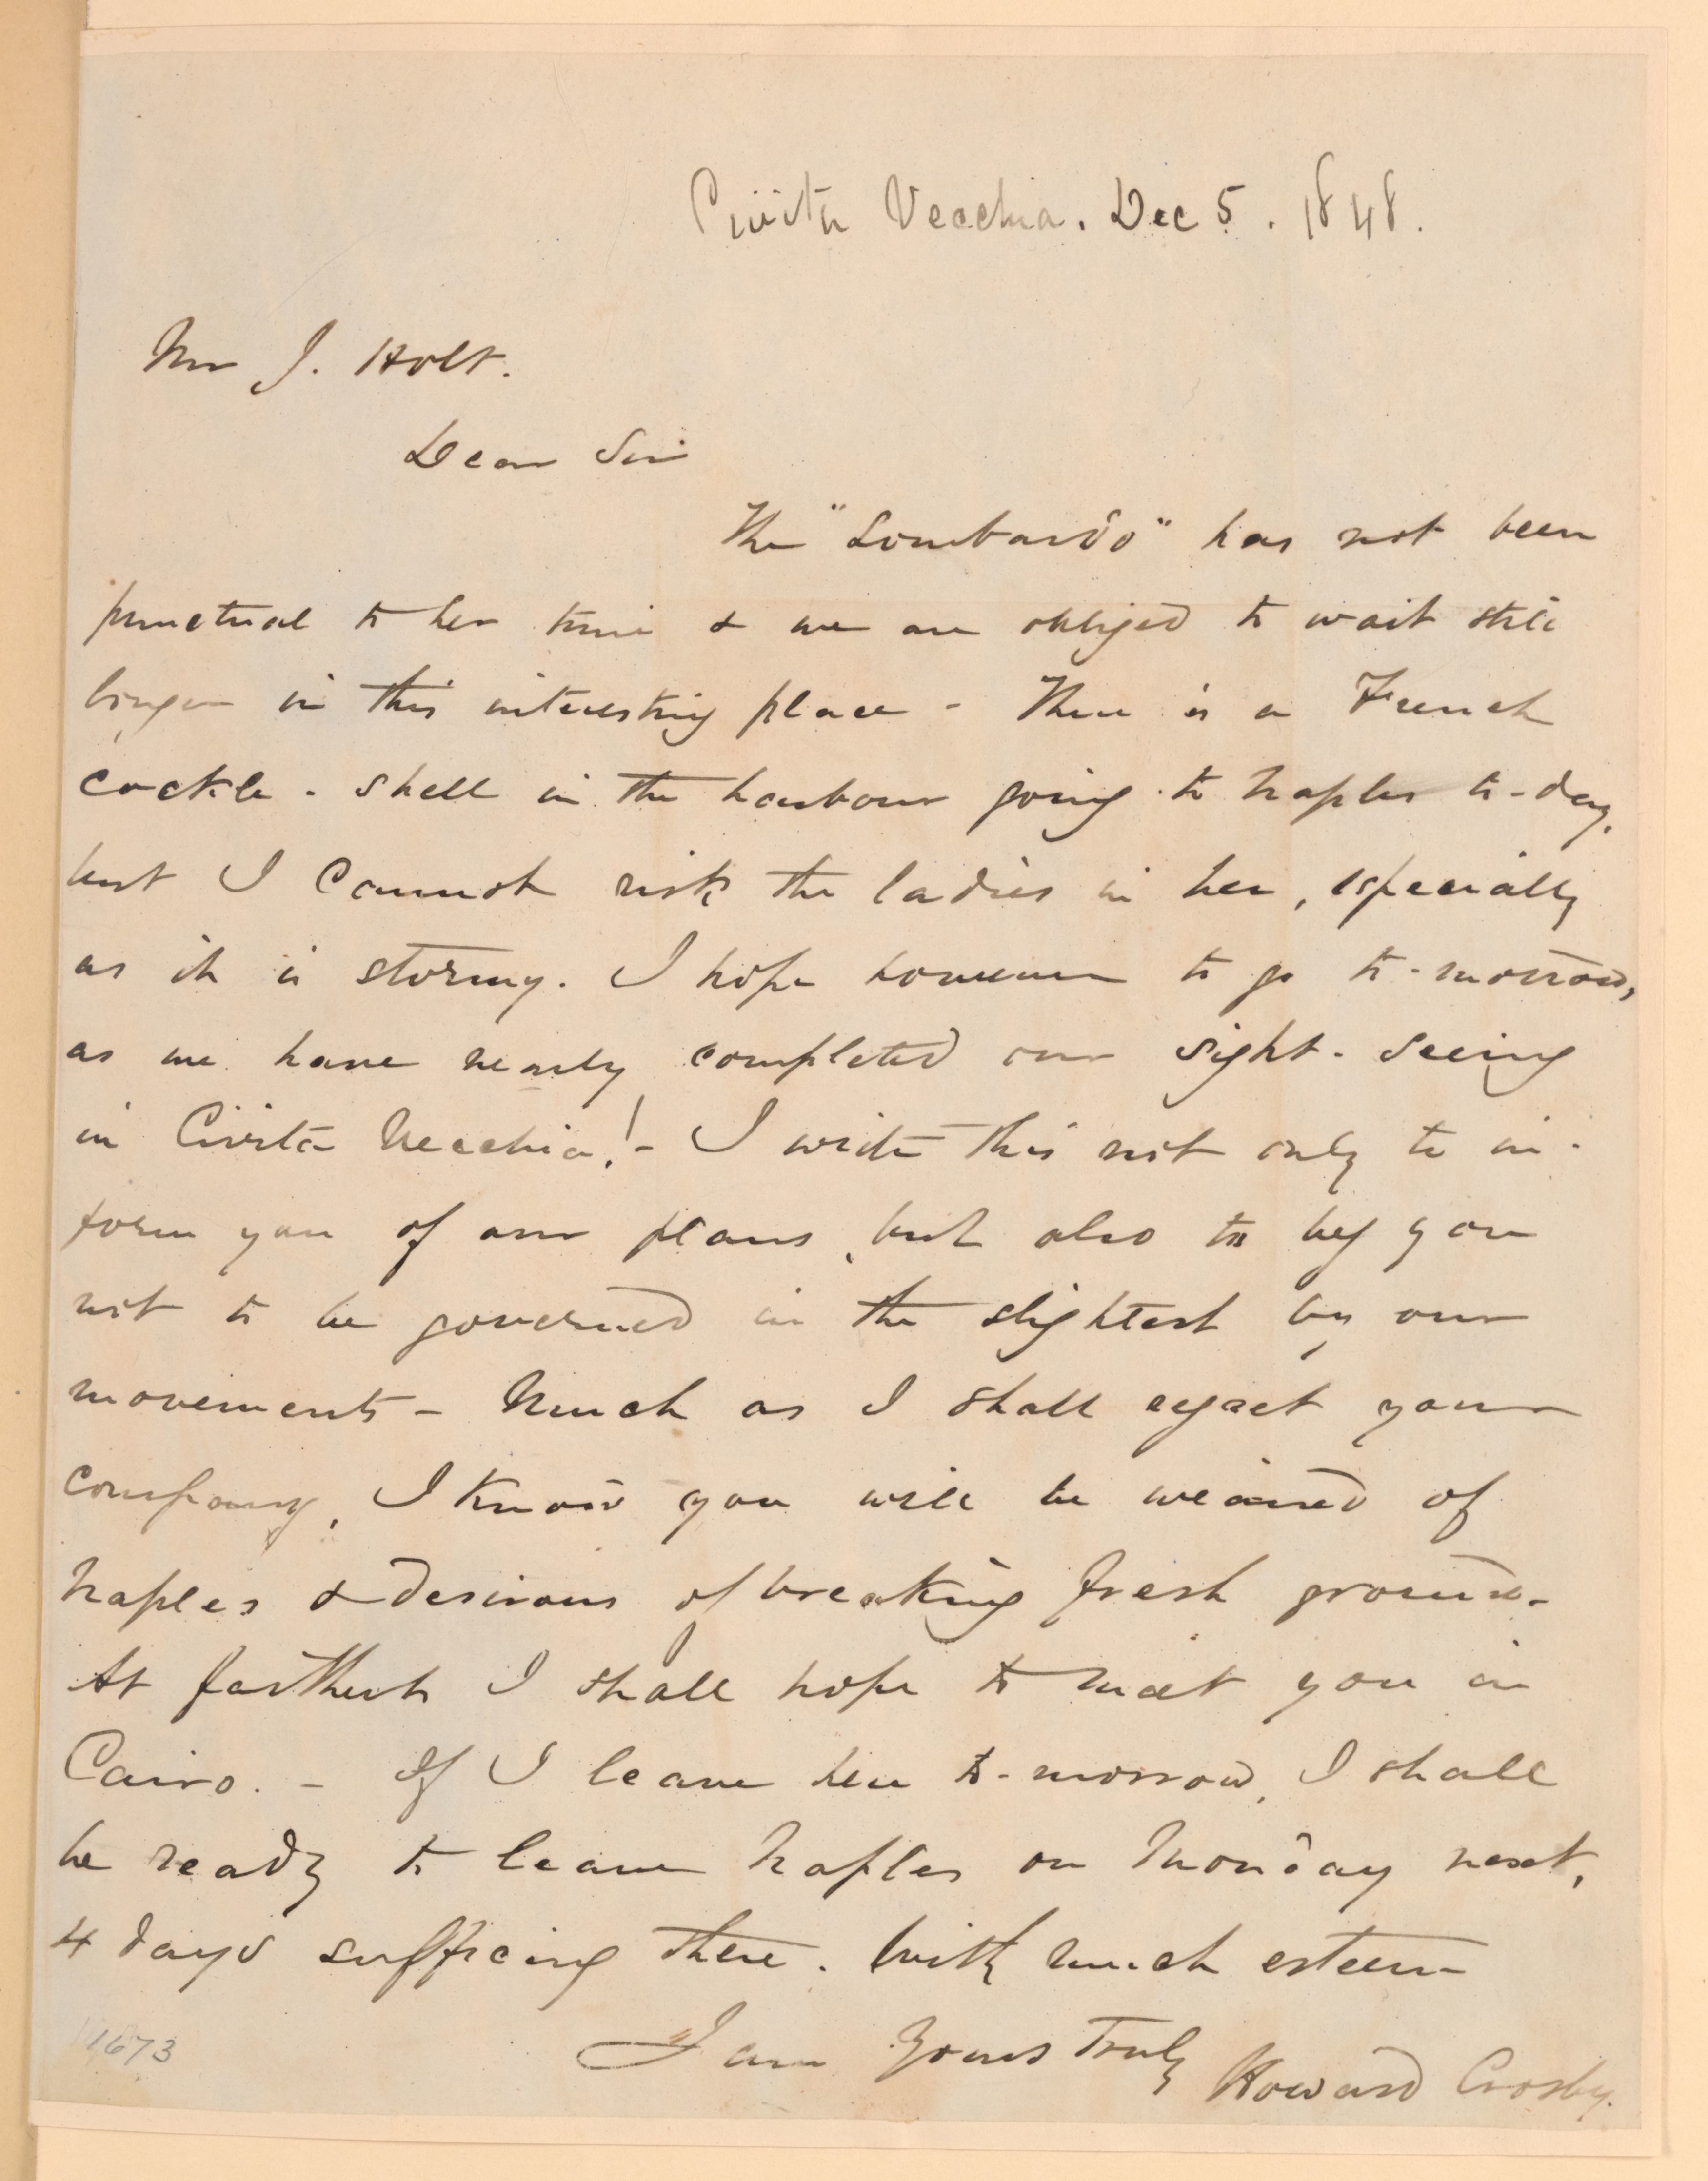 Civita Vecchia. Dec 5. 1848.
Mr J. Holt.
Dear Sir
The "Lombardo" has not been
punctual to her time & we are obliged to wait still
longer in this interesting place - There is a French
cockle-shell in the harbour going to Naples to-day,
but I cannot risk the ladies in her, especially
as it is stormy. I hope however to go to-morrow,
as we have nearly completed our sight-seeing
in Civita Vecchia! - I write this not only to in-
form you of our plans, but also to beg you
not to be governed in the slightest by our
movements - Much as I shall regret your
company, I know you will be wearied of
Naples & desirous of breaking fresh ground.
At farthest I shall hope to meet you in
Cairo. - If I leave here to-morrow, I shall
be ready to leave Naples on Monday next,
4 days sufficing there. With much esteem
I am Yours Truly Howard Crosby.
1673